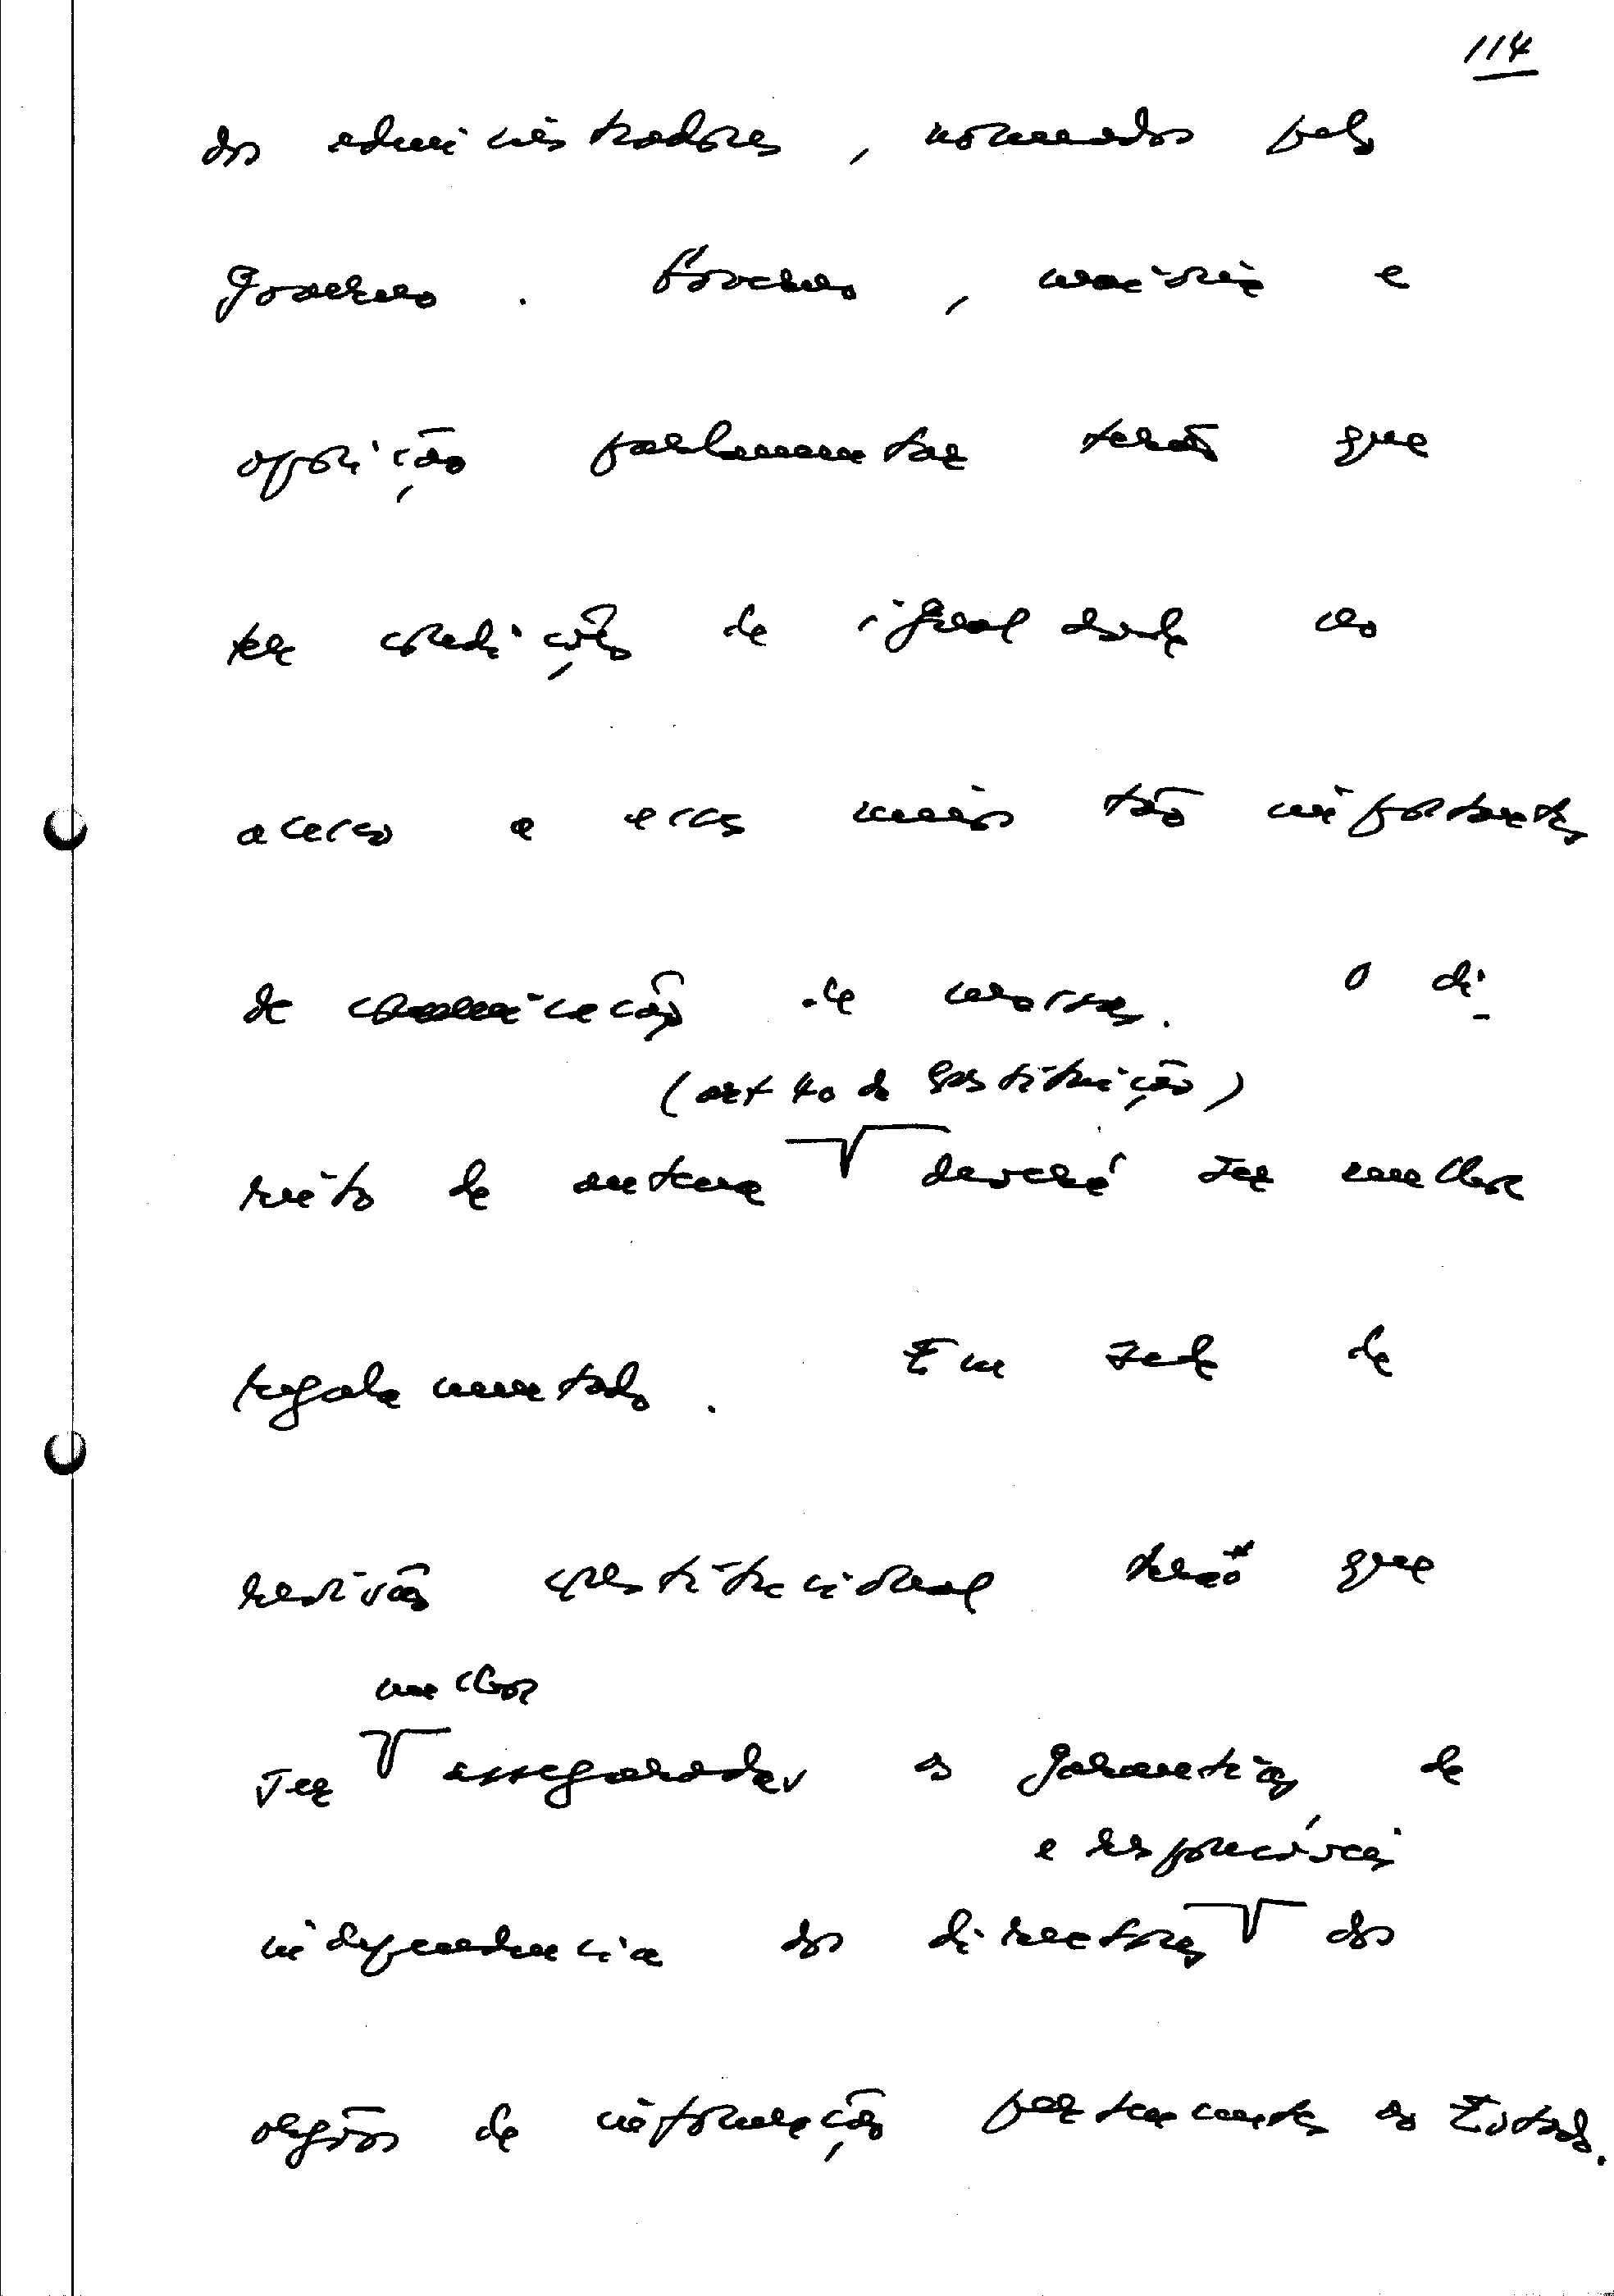 114
dos administradores, nomeados pelo
Governo. Governo, maioria e
oposição parlamentar terão que
ter condições de igualdade no
acesso a esses meios tão importantes
de comunicação de massas. O di-
(art 40 da Constituição)
reito de antena deverá ser melhor
regulamentado. Em sede de
revisão constitucional terão que
melhor
ser asseguradas as garantias de
e responsáveis
independência dos directores dos
orgãos de informação pertencentes ao Estado.